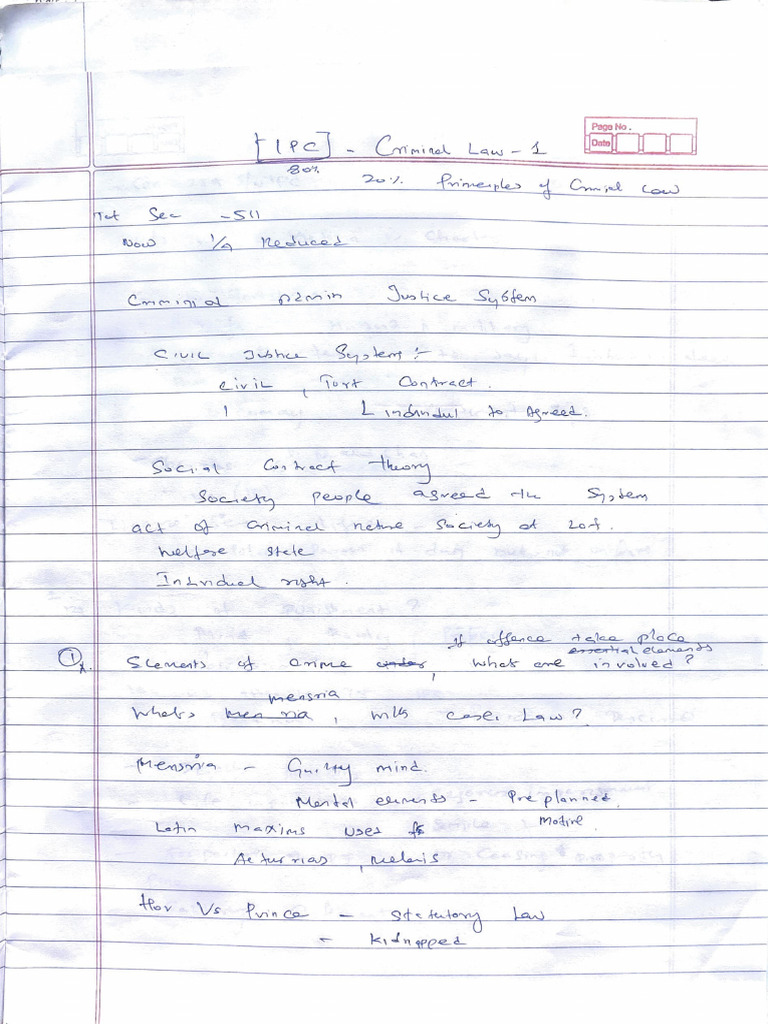 Page No.
Date
[IPC] - Criminal Law - 1
80% 20% Principles of Criminal Law
Tot Sec - 511
Now 1/4 Reduced
Criminal Admin Justice System
Civil Justice System :-
civil, Tort Contract.
Individul to Agreed.
Social Contract theory
Society people agreed the System
act of Criminal nature - Society at
Welfare state
Individual right.
If offence take place
essential elements
① Elements of crime under, What are involved?
mensria
Whats men ria, with case Law?
Mensria - Guilty mind.
Mental elements - Pre planned
Motive
Latin maxims uses
Acturrias,
Vs Prince - Statutory Law
- kidnapped